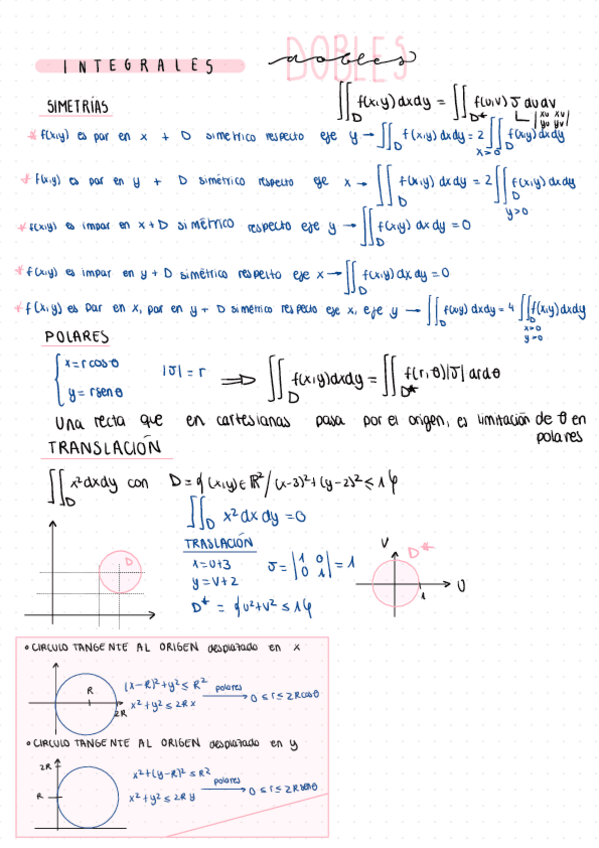 INTEGRALES dobles DOBLES
SIMETRÍAS
∬_D f(x,y) dxdy = ∬_D* f(u,v) J dudv
|xu xv|
|yu yv|
* f(x,y) es par en x + D simétrico respecto eje y → ∬_D f(x,y) dxdy = 2 ∬_D f(x,y) dxdy
x>0
* f(x,y) es par en y + D simétrico respecto eje x → ∬_D f(x,y) dxdy = 2 ∬_D f(x,y) dxdy
y>0
* f(x,y) es impar en x + D simétrico respecto eje y → ∬_D f(x,y) dxdy = 0
* f(x,y) es impar en y + D simétrico respecto eje x → ∬_D f(x,y) dxdy = 0
* f(x,y) es par en x, par en y + D simétrico respecto eje x, eje y → ∬_D f(x,y) dxdy = 4 ∬_D f(x,y) dxdy
x>0
y>0
POLARES
{ x = r cosθ
y = r senθ
|J| = r ⟹ ∬_D f(x,y) dxdy = ∬_D* f(r,θ) |J| drdθ
Una recta que en cartesianas pasa por el origen, es limitación de θ en
polares
TRANSLACIÓN
∬_D x² dxdy con D = {(x,y) ∈ ℝ² / (x-3)² + (y-2)² ≤ 1}
∬_D x² dxdy = 0
D
TRASLACIÓN
x = u+3
y = v+2
J = |1 0|
|0 1| = 1
D* = {u² + v² ≤ 1}
V
D*
1
U
• CIRCULO TANGENTE AL ORIGEN desplazado en x
R
2R
(x-R)² + y² ≤ R²
x² + y² ≤ 2Rx
polares
0 ≤ r ≤ 2Rcosθ
• CIRCULO TANGENTE AL ORIGEN desplazado en y
2R
R
x² + (y-R)² ≤ R²
x² + y² ≤ 2Ry
polares
0 ≤ r ≤ 2Rsenθ